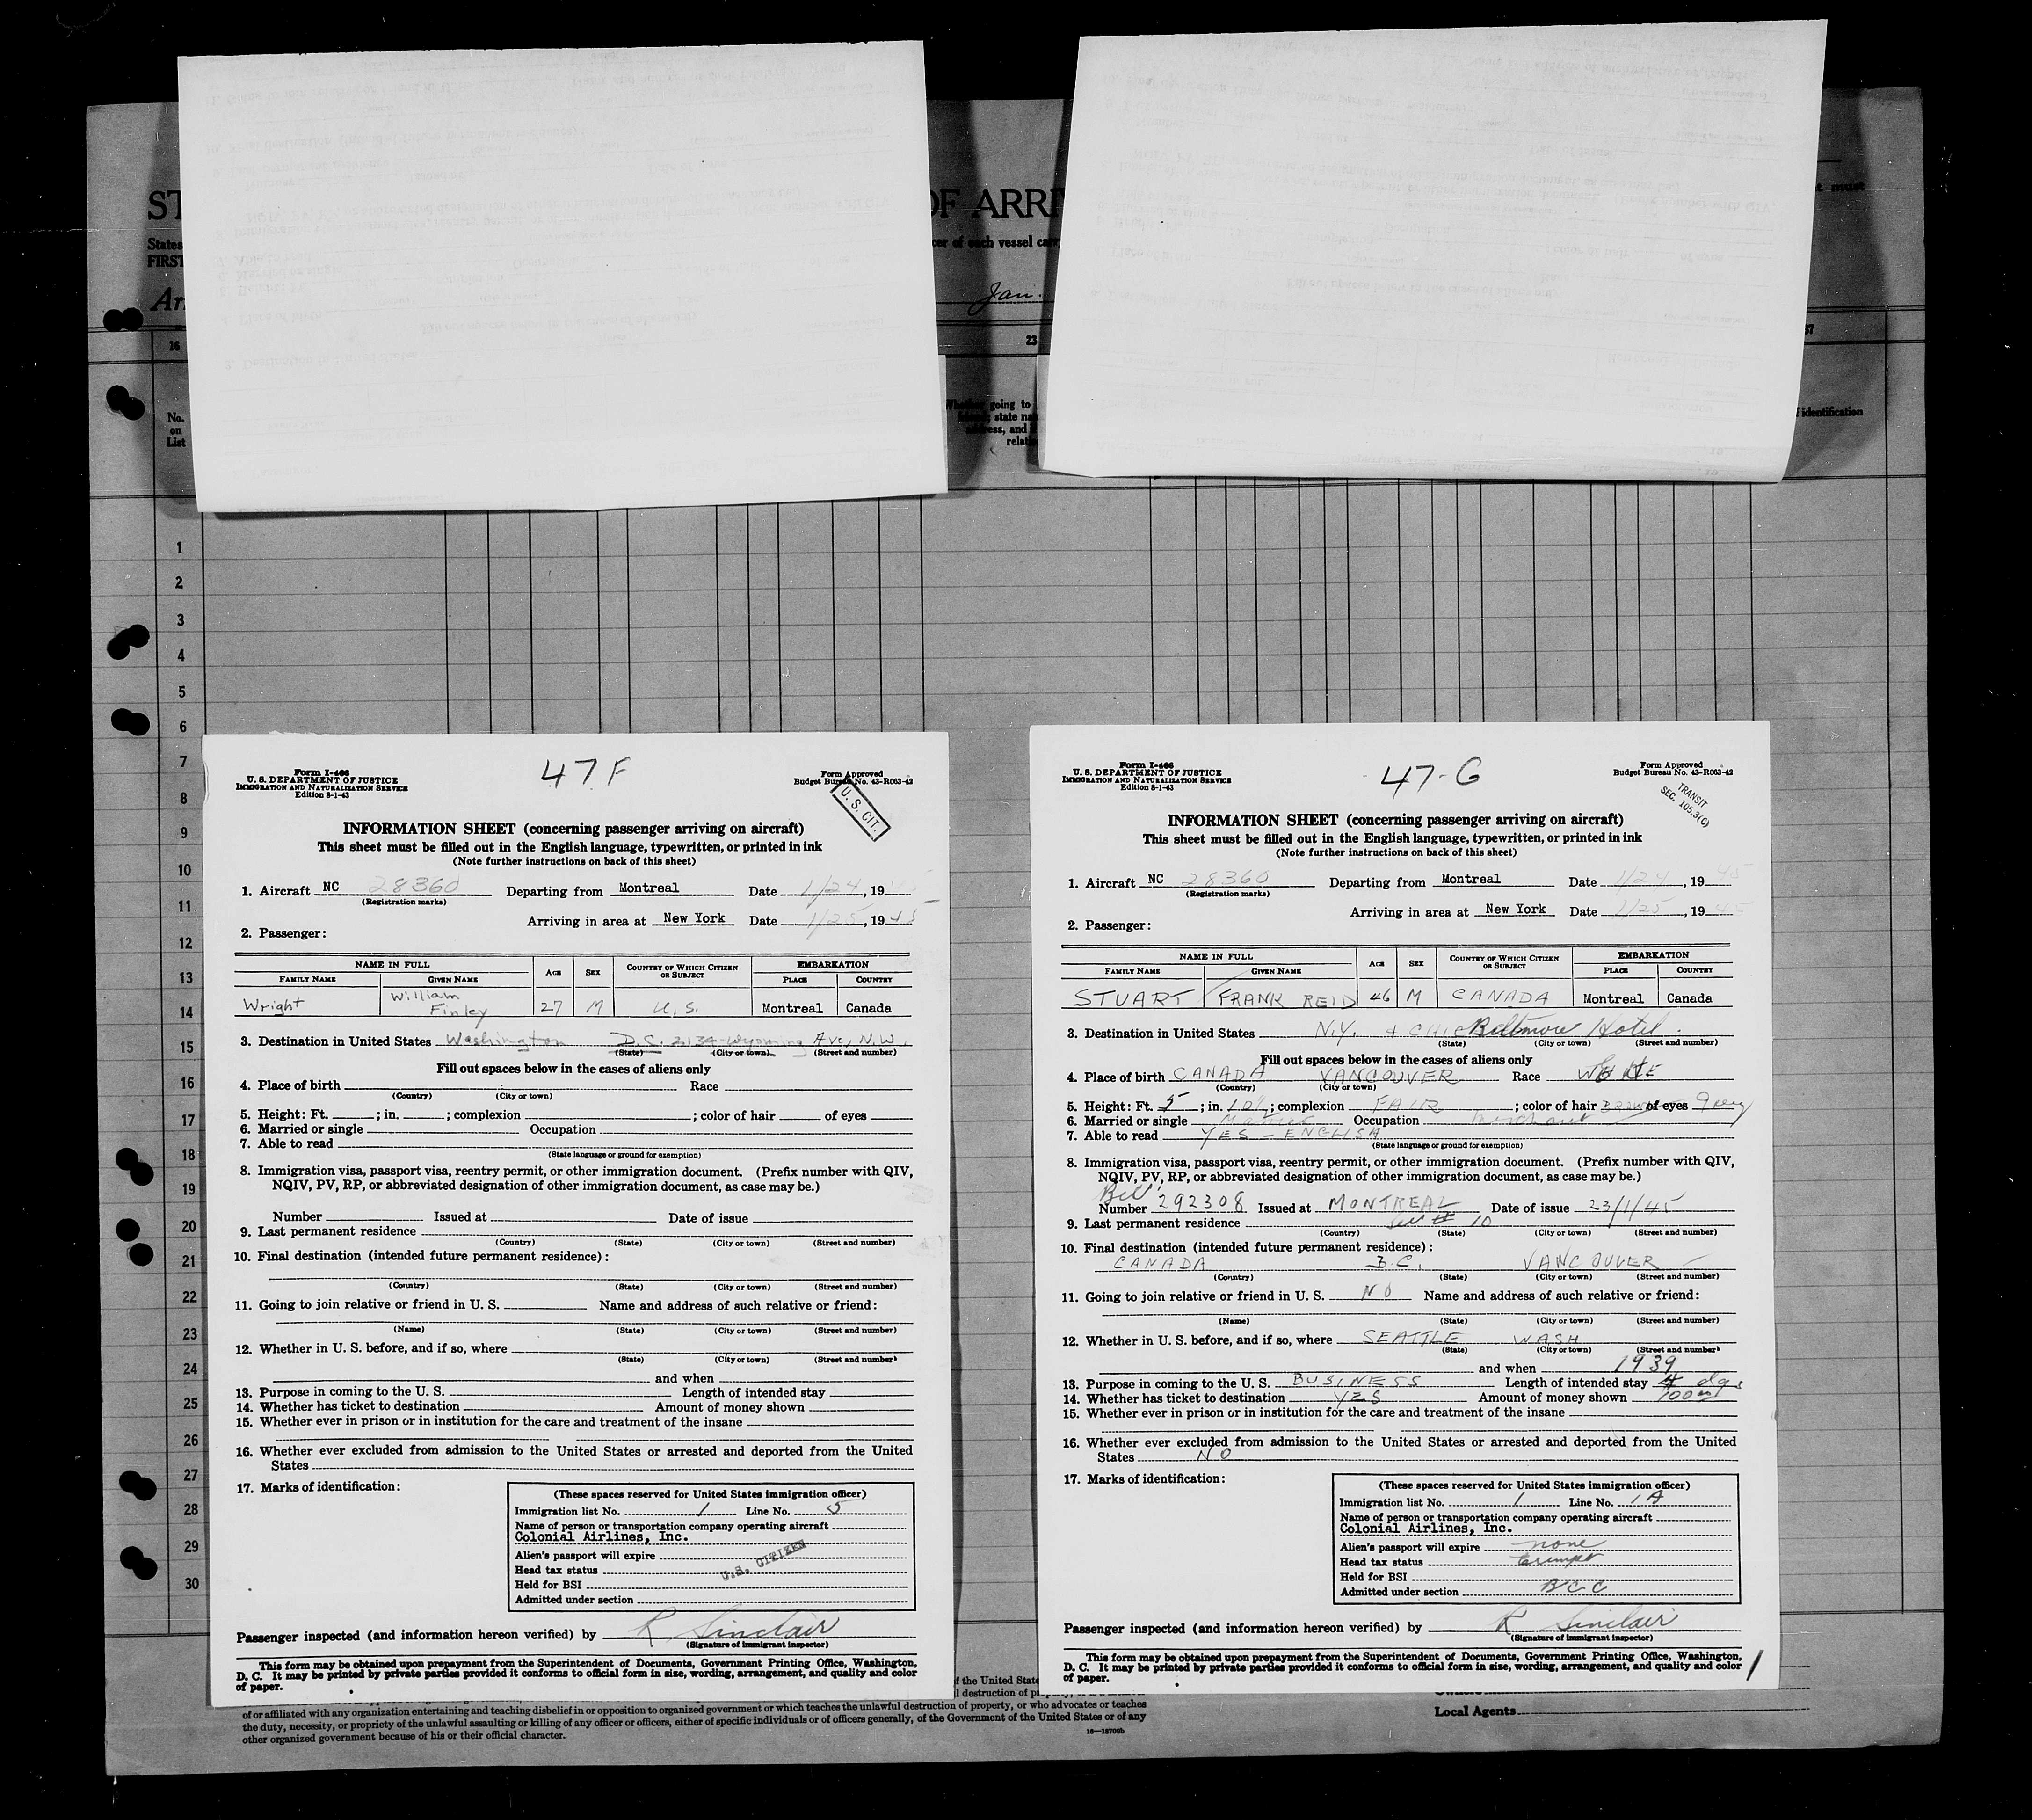 ST
OF ARRI
States
cer of each vessel car
must
FIRST
Ar
Jan.
16
23
37
No.
on
List
Whether going to
friend; state na
address, and
relati
identification
1
2
3
4
5
6
7
8
9
10
11
12
13
14
15
16
17
18
19
20
21
22
23
24
25
26
27
28
29
30
Form I-466
U. S. DEPARTMENT OF JUSTICE
IMMIGRATION AND NATURALIZATION SERVICE
Edition 8-1-43
47 F
Form Approved
Budget Bureau No. 43-R063-42
U. S. CIT.
INFORMATION SHEET (concerning passenger arriving on aircraft)
This sheet must be filled out in the English language, typewritten, or printed in ink
(Note further instructions on back of this sheet)
1. Aircraft NC 28360 Departing from Montreal Date 1/24, 19 45
(Registration marks)
Arriving in area at New York Date 1/25, 19 45
2. Passenger:
NAME IN FULL AGE SEX COUNTRY OF WHICH CITIZEN OR SUBJECT EMBARKATION
FAMILY NAME GIVEN NAME PLACE COUNTRY
Wright William Finley 27 M U.S. Montreal Canada
3. Destination in United States Washington D.C. 2134 Wyoming Ave, N.W.
(State) (City or town) (Street and number)
Fill out spaces below in the cases of aliens only
4. Place of birth Race
(Country) (City or town)
5. Height: Ft. ; in. ; complexion ; color of hair of eyes
6. Married or single Occupation
7. Able to read
(State language or ground for exemption)
8. Immigration visa, passport visa, reentry permit, or other immigration document. (Prefix number with QIV,
NQIV, PV, RP, or abbreviated designation of other immigration document, as case may be.)
Number Issued at Date of issue
9. Last permanent residence
(Country) (State) (City or town) (Street and number)
10. Final destination (intended future permanent residence):
(Country) (State) (City or town) (Street and number)
11. Going to join relative or friend in U. S. Name and address of such relative or friend:
(Name) (State) (City or town) (Street and number)
12. Whether in U. S. before, and if so, where
(State) (City or town) (Street and number)
and when
13. Purpose in coming to the U. S. Length of intended stay
14. Whether has ticket to destination Amount of money shown
15. Whether ever in prison or in institution for the care and treatment of the insane
16. Whether ever excluded from admission to the United States or arrested and deported from the United
States
17. Marks of identification:
(These spaces reserved for United States immigration officer)
Immigration list No. 1 Line No. 5
Name of person or transportation company operating aircraft
Colonial Airlines, Inc.
Alien's passport will expire
Head tax status U.S. CITIZEN
Held for BSI
Admitted under section
Passenger inspected (and information hereon verified) by R Sinclair
(Signature of immigrant inspector)
This form may be obtained upon prepayment from the Superintendent of Documents, Government Printing Office, Washington,
D. C. It may be printed by private parties provided it conforms to official form in size, wording, arrangement, and quality and color
of paper.
Form I-466
U. S. DEPARTMENT OF JUSTICE
IMMIGRATION AND NATURALIZATION SERVICE
Edition 8-1-43
47-G
Form Approved
Budget Bureau No. 43-R063-42
TRANSIT
SEC. 105.3(C)
INFORMATION SHEET (concerning passenger arriving on aircraft)
This sheet must be filled out in the English language, typewritten, or printed in ink
(Note further instructions on back of this sheet)
1. Aircraft NC 28360 Departing from Montreal Date 1/24, 19 45
(Registration marks)
Arriving in area at New York Date 1/25, 19 45
2. Passenger:
NAME IN FULL AGE SEX COUNTRY OF WHICH CITIZEN OR SUBJECT EMBARKATION
FAMILY NAME GIVEN NAME PLACE COUNTRY
STUART FRANK REID 46 M CANADA Montreal Canada
3. Destination in United States N.Y. + CHIC Biltmore Hotel.
(State) (City or town) (Street and number)
Fill out spaces below in the cases of aliens only
4. Place of birth CANADA VANCOUVER Race WHITE
(Country) (City or town)
5. Height: Ft. 5 ; in. 10½; complexion FAIR ; color of hair BROWN of eyes Grey
6. Married or single Married Occupation Merchant
7. Able to read YES - ENGLISH
(State language or ground for exemption)
8. Immigration visa, passport visa, reentry permit, or other immigration document. (Prefix number with QIV,
NQIV, PV, RP, or abbreviated designation of other immigration document, as case may be.)
Number 292308 Issued at MONTREAL Date of issue 23/1/45
9. Last permanent residence See # 10
(Country) (State) (City or town) (Street and number)
10. Final destination (intended future permanent residence):
CANADA B.C. VANCOUVER
(Country) (State) (City or town) (Street and number)
11. Going to join relative or friend in U. S. NO Name and address of such relative or friend:
(Name) (State) (City or town) (Street and number)
12. Whether in U. S. before, and if so, where SEATTLE WASH
(State) (City or town) (Street and number)
and when 1939
13. Purpose in coming to the U. S. BUSINESS Length of intended stay 4 dys
14. Whether has ticket to destination YES Amount of money shown 100 00
15. Whether ever in prison or in institution for the care and treatment of the insane
16. Whether ever excluded from admission to the United States or arrested and deported from the United
States NO
17. Marks of identification:
(These spaces reserved for United States immigration officer)
Immigration list No. 1 Line No. 1A
Name of person or transportation company operating aircraft
Colonial Airlines, Inc.
Alien's passport will expire none
Head tax status Exempt
Held for BSI
Admitted under section BCC
Passenger inspected (and information hereon verified) by R Sinclair
(Signature of immigrant inspector)
This form may be obtained upon prepayment from the Superintendent of Documents, Government Printing Office, Washington,
D. C. It may be printed by private parties provided it conforms to official form in size, wording, arrangement, and quality and color
of paper.
1
of the United State
destruction of property,
of or affiliated with any organization entertaining and teaching disbelief in or opposition to organized government or which teaches the unlawful destruction of property, or who advocates or teaches
the duty, necessity, or propriety of the unlawful assaulting or killing of any officer or officers, either of specific individuals or of officers generally, of the Government of the United States or of any
other organized government because of his or their official character.
16—18709b
Local Agents